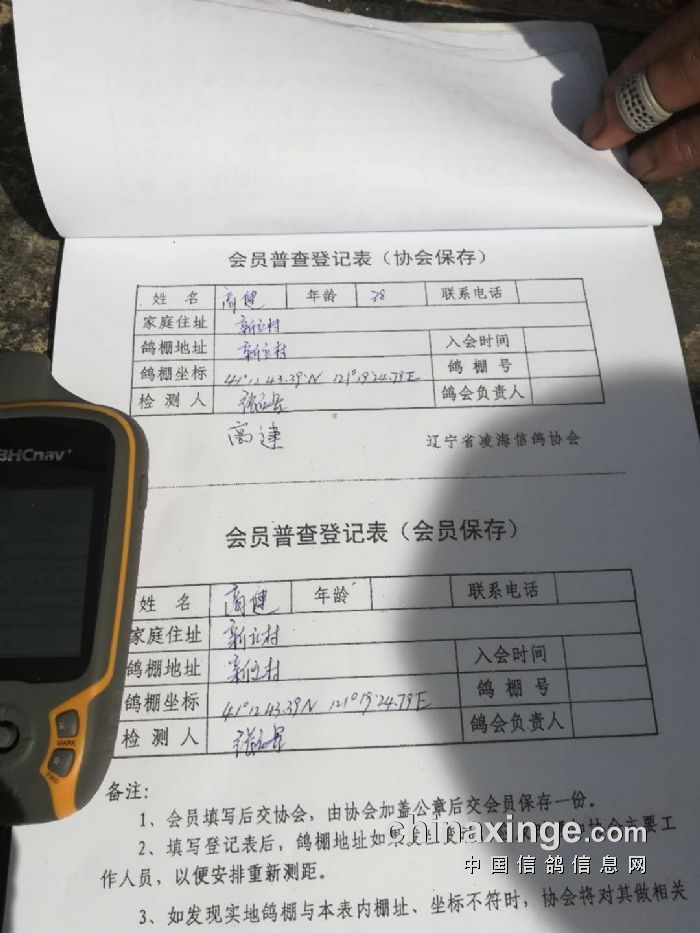 会员普查登记表（协会保存）
姓 名 高健 年龄 78 联系电话
家庭住址 新立村
鸽棚地址 新立村 入会时间
鸽棚坐标 41°12 43.39 N 121°19 24.79 E 鸽 棚 号
检 测 人 鸽会负责人
高健
辽宁省凌海信鸽协会
BHCnav+
会员普查登记表（会员保存）
姓 名 高健 年龄 联系电话
家庭住址 新立村
鸽棚地址 新立村 入会时间
鸽棚坐标 41°12 43.39 N 121°19 24.79 E 鸽 棚 号
检 测 人 鸽会负责人
MARK
FIND
备注：
1、会员填写后交协会，由协会加盖公章后交会员保存一份。
2、填写登记表后，鸽棚地址如 协会主要工
作人员，以便安排重新测距。
3、如发现实地鸽棚与本表内棚址、坐标不符时，协会将对其做相关
chinaxinge.com
中国信鸽信息网